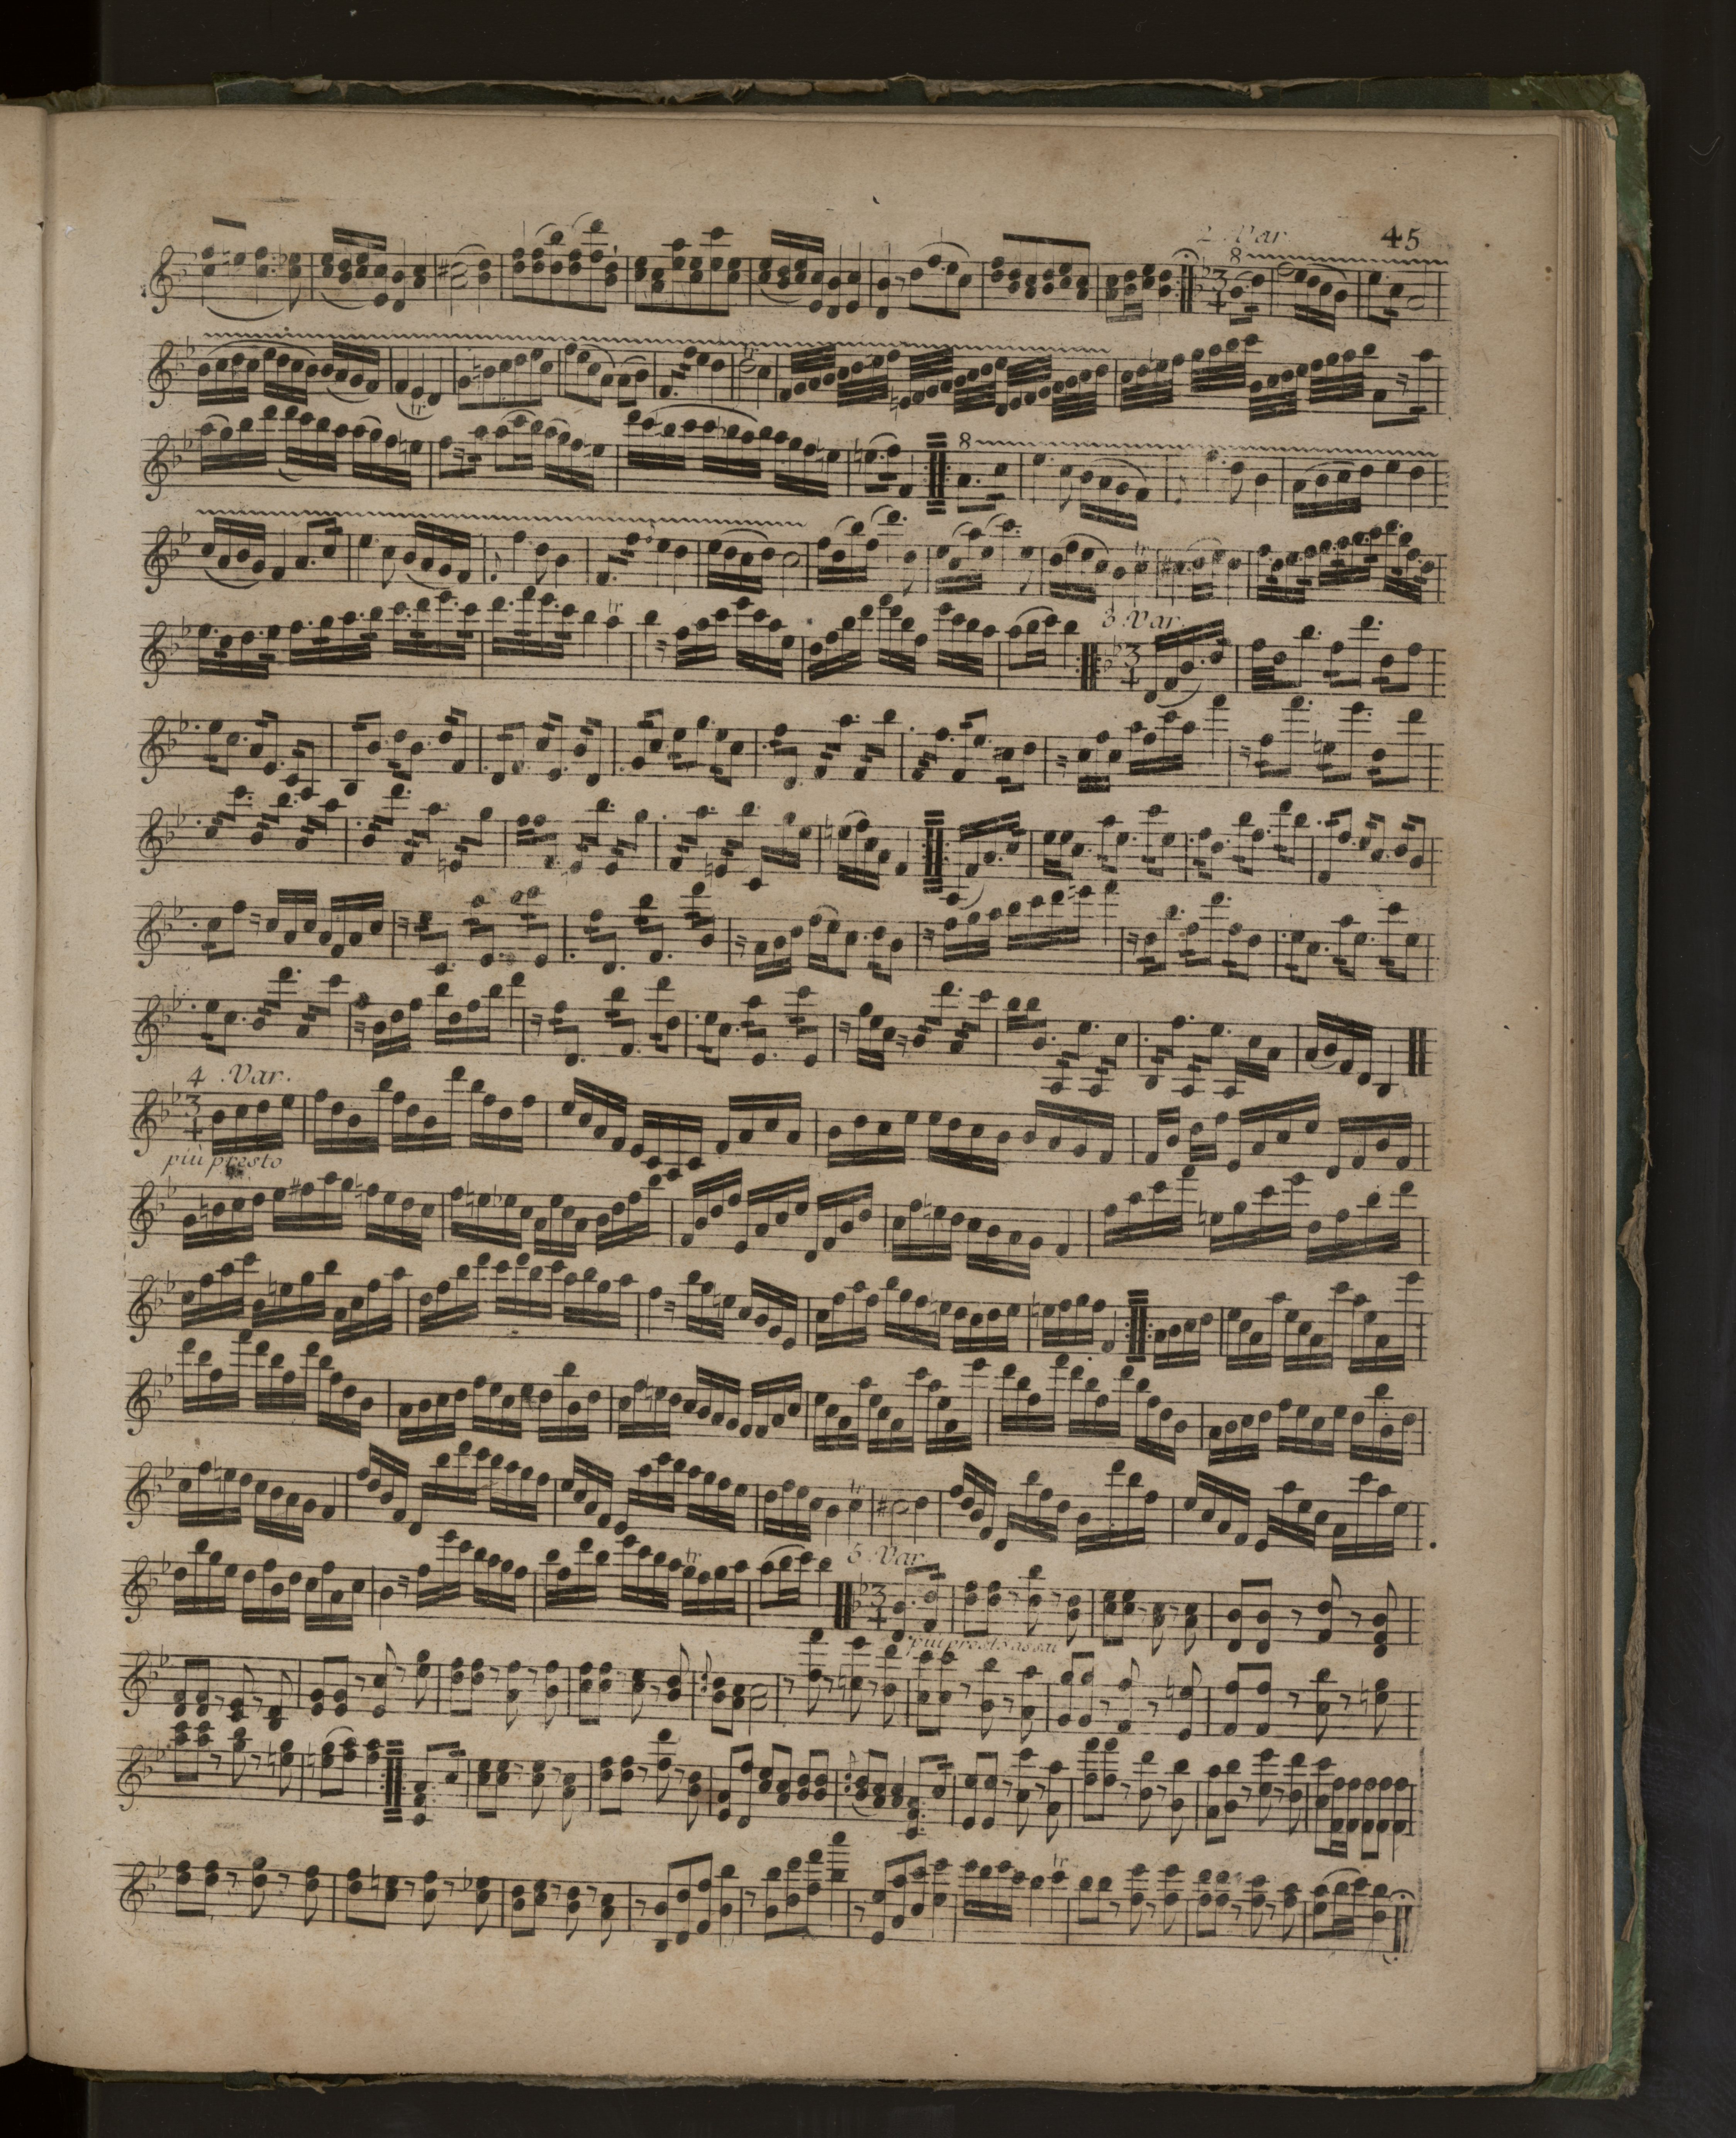 2. Var 45
8
tr
tr
8
tr
tr
3 Var.
4 .Var.
più presto
tr
tr
5 Var.
più presto assai
tr